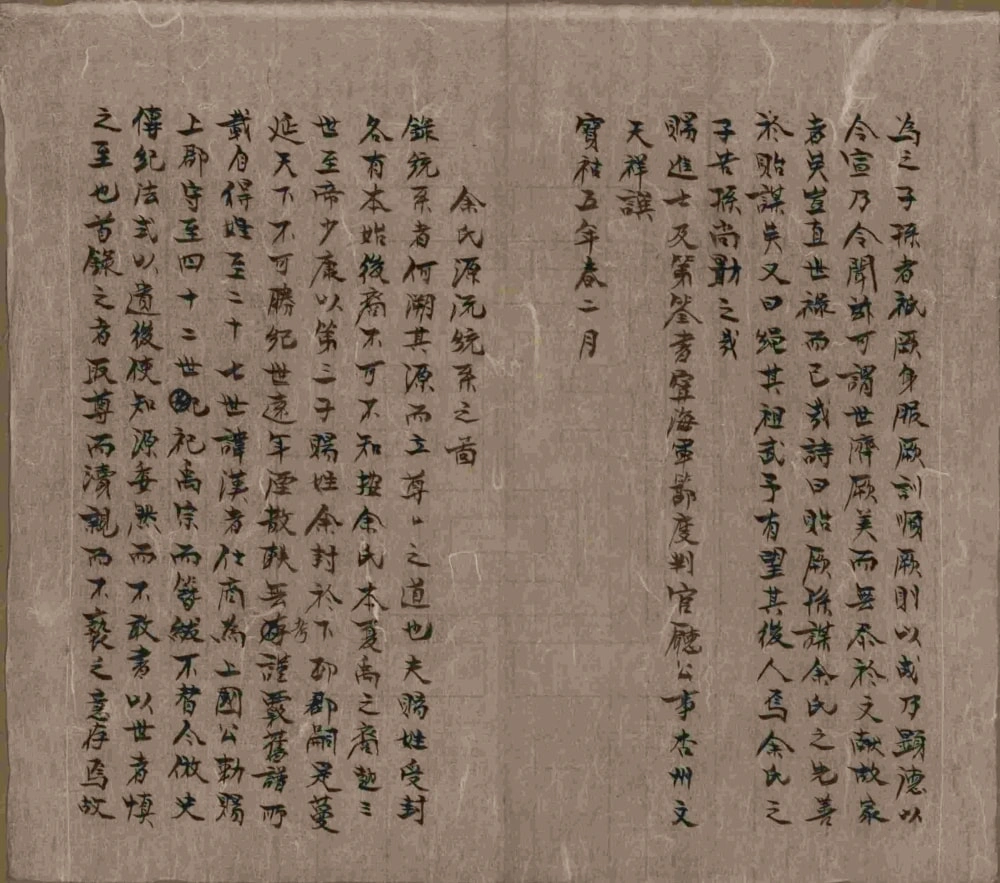 為之子孫者祗厥身服厥訓順厥則以成乃顯德以
令宣乃令聞茲可謂世濟厥美而無忝於文獻故家
者矣豈直世祿而已哉詩曰貽厥孫謀余氏之先善
於貽謀矣又曰繩其祖武予有望其後人焉余氏之
子若孫尚勖之哉
賜進士及第簽書寧海軍節度判官廳公事吉州文
天祥譔
寶祐五年春二月
余氏源流統系之圖
錄統系者何溯其源而立尊〻之道也夫賜姓受封
各有本始後裔不可不知按余氏本夏禹之裔越三
世至帝少康以第三子賜姓余封於下邳郡嗣是蔓
延天下不可勝紀世遠年湮散軼無考謹覈舊譜所
載自得姓至二十七世諱漢者仕商為上國公勅賜
上郡守至四十二世祀禹宗而簪紱不替今倣史
傳紀法式以遺後使知源委然而不敢者以世者慎
之至也首錄之者取尊而瀆親而不褻之意存焉故